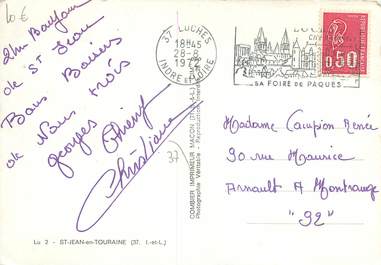 10 €
Un Bonjour
de St Jean
Bons Baisers
de Nous trois
georges Thierry
Christiane
37 LOCHES
18H45
28-8
197
INDRE ET LOIRE
SA FOIRE DE PAQUES
0,50
COMBIER IMPRIMEUR MACON
Photographie Véritable - Reproduction
37
Madame Campion Renée
90 rue Maurice
Arnault A Montrouge
"92"
Lu 2 - ST-JEAN-en-TOURAINE (37. I.-et-L.)